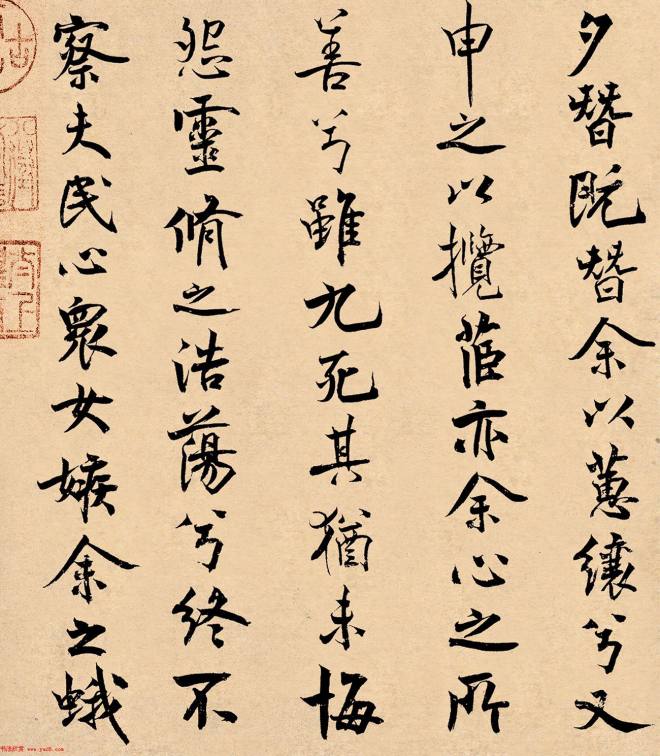 夕朁既朁余以蕙纕兮又
申之以攬茝亦余心之所
善兮雖九死其猶未悔
怨靈脩之浩蕩兮終不
察夫民心衆女嫉余之蛾